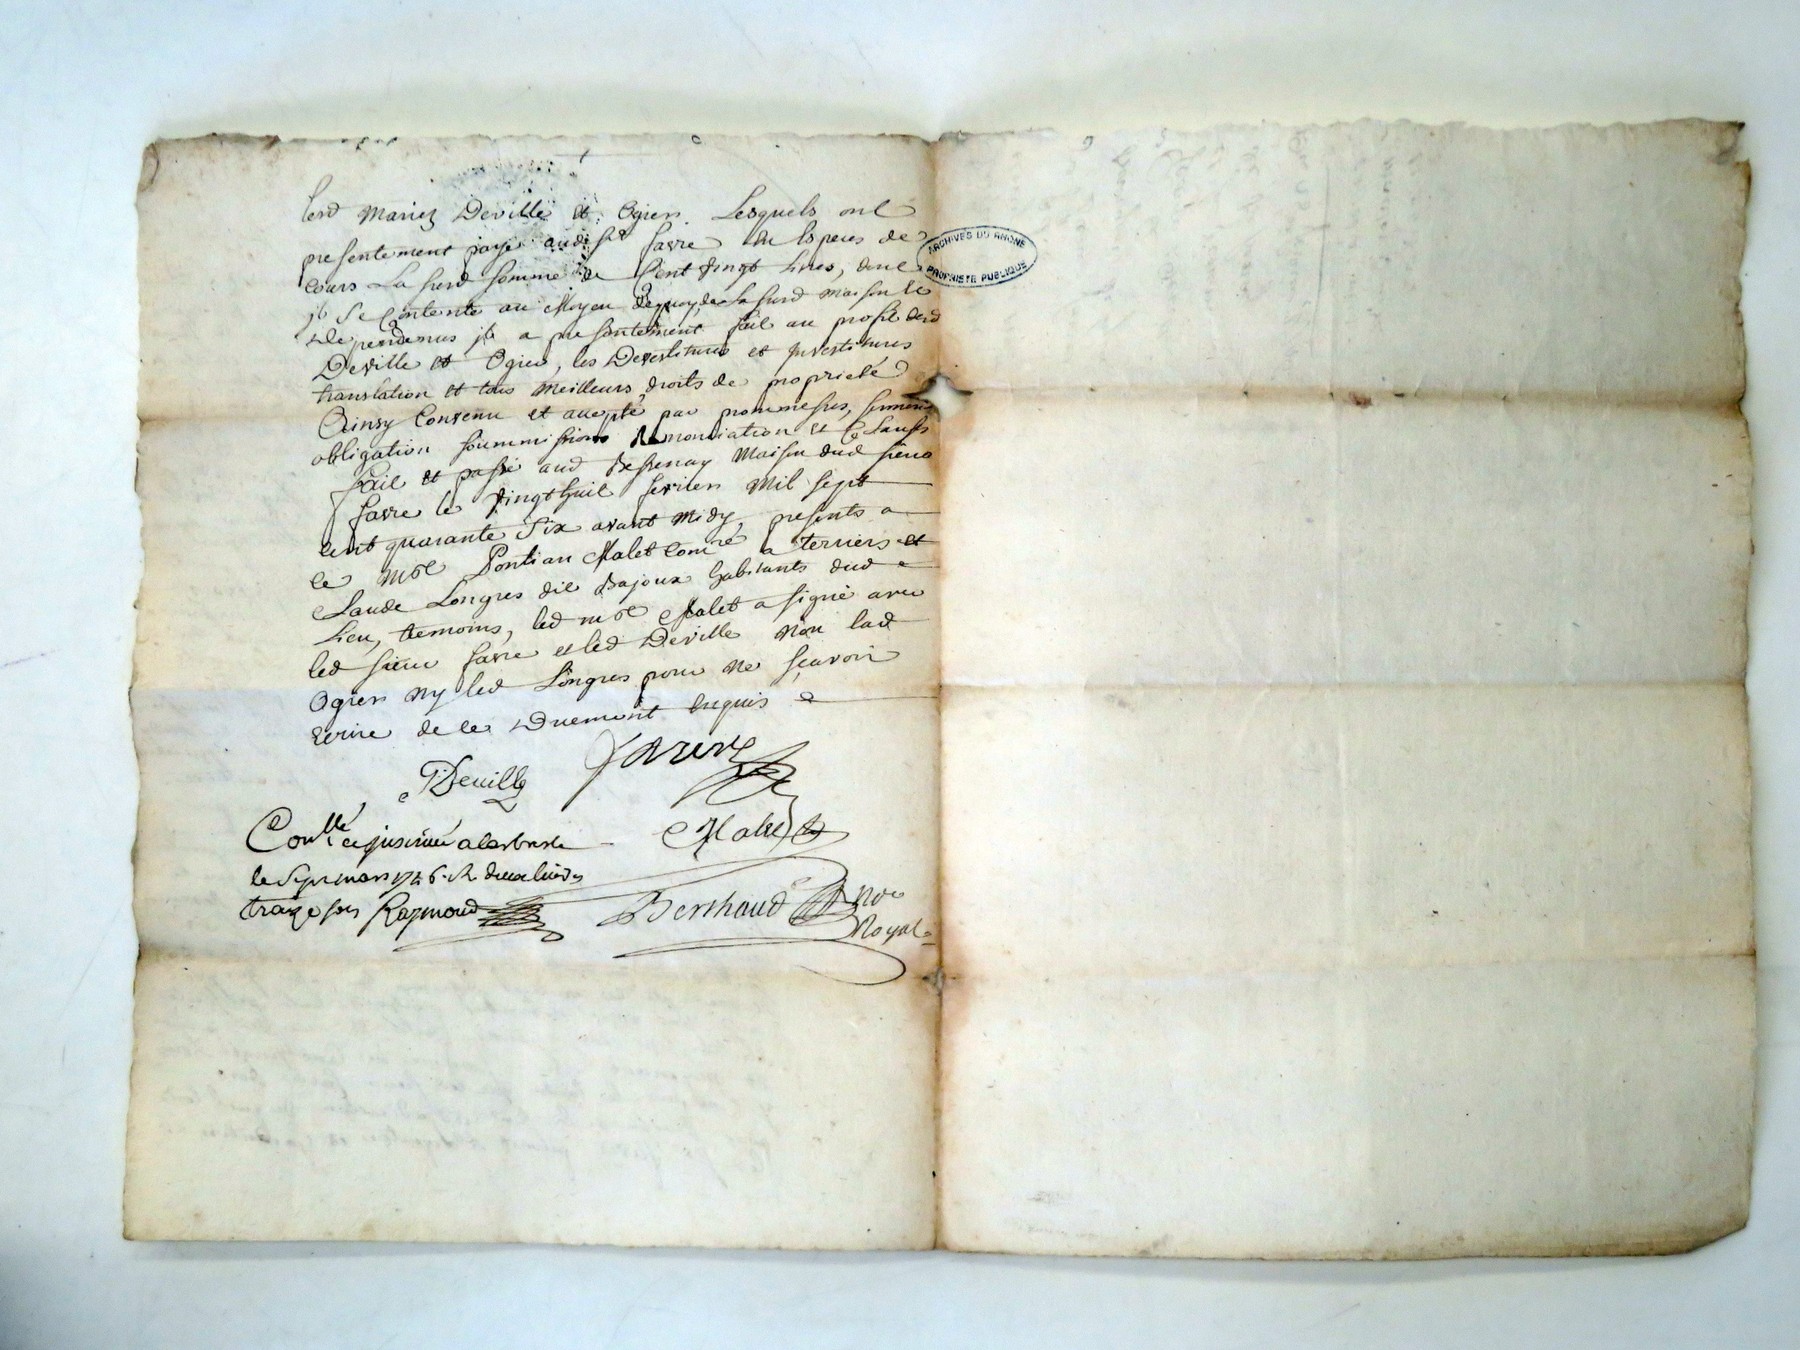 lesd Mariez Deville et Ogier Lesquels ont
presentement payé aud sr favre En Especes de
Cours La susd somme de Cent vingt Livres, dont
Se Contente au Moyen dequoy, de La susd Maison et
dependences jl a presentement fait au profit desd
Deville et Ogier, les Devestitures et jnvestitures
translation et tous Meilleurs droits de proprieté
Ainsy Convenu et accepté par promesses, serments
obligation soummissions Renonciation et Clauses
fait et passé aud Bessenay Maison dud sieur
favre le vingt huit fevrier Mil sept
cent quarante Six avant Midy, presents
le Mdt Pontian Malet Comre a terriers et
Claude Longres dit Bajoux habitants dud
Lieu, temoins, led Malet a signé avec
led sieur favre et led Deville Non lad
Ogier Ny led Longres pour Ne sçavoir
Ecrire de ce Duement Enquis
favre
Deville
Conllé et jnsinué alarbresle
Malet
le Sept mars 1746. R. deux livres
traize sols Raymond
Berthaud Nre
Royal
ARCHIVES DU RHONE
PROPRIETE PUBLIQUE